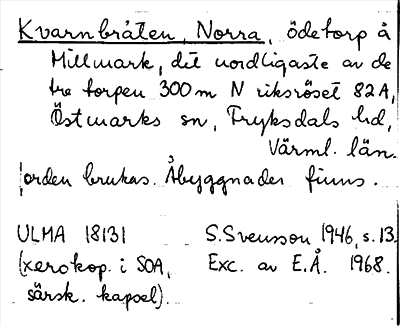 Kvarnbråten, Norra, ödetorp å
Millmark, det nordligaste av de
tre torpen 300 m N riksröset 82A,
Östmarks sn, Fryksdals hd,
Värml. län.
Jorden brukas. Åbyggnader finns.
ULMA 18131 S.Svensson 1946, s.13.
(xerokop. i SOA, Exc. av E.Å. 1968.
särsk. kapsel).